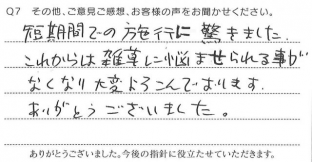 Q7 その他、ご意見ご感想、お客様の声をお聞かせください。
短期間での施行に驚きました。
これからは雑草に悩ませられる事が
なくなり大変よろこんでおります。
ありがとうございました。
ありがとうございました。今後の指針に役立たせていただきます。